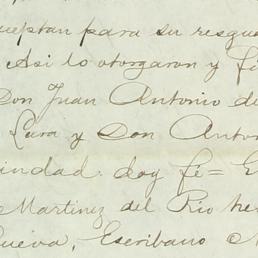 ueptan para su resgua
Asi lo otorgaron y fi
Don Juan Antonio de
Lara y Don Anton
inidad. doy fe = E
Martinez del Rio he
ueva, Escribano